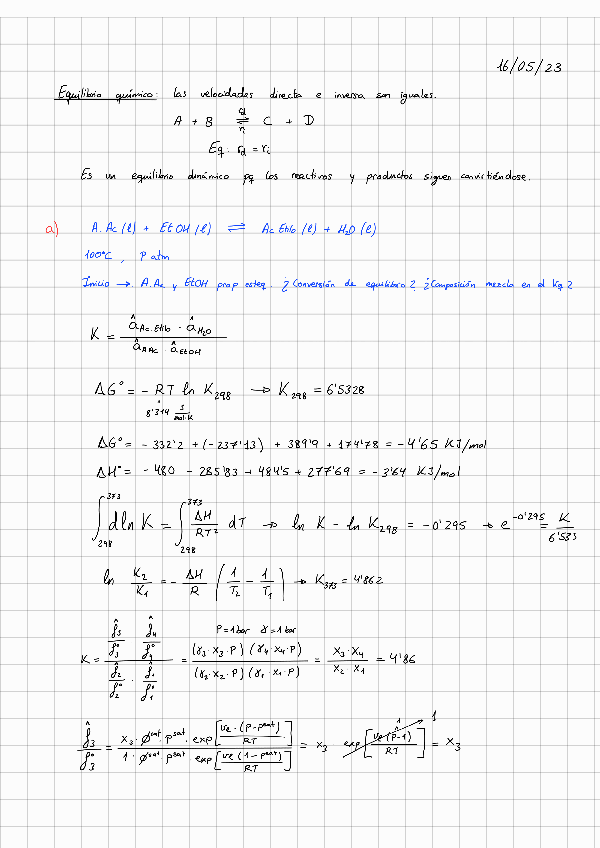 16/05/23
Equilibrio químico: las velocidades directa e inversa son iguales.
A + B ⇌ C + D
Eq. rd = ri
Es un equilibrio dinámico pq los reactivos y productos siguen convirtiéndose.
a) A.Ac (l) + EtOH (l) ⇌ Ac Etilo (l) + H2O (l)
100ºC, P atm
Inicio → A.Ac y EtOH prop esteq. ¿Conversión de equilibrio? ¿Composición mezcla en el Eq?
K = (â Ac.Etilo · â H2O) / (â AAc · â EtOH)
ΔG° = - RT ln K298 → K298 = 6'5328
8'314 J/mol·K
ΔG° = - 332'2 + (-237'13) + 389'9 + 174'78 = -4'65 KJ/mol
ΔH° = - 480 - 285'83 + 484'5 + 277'69 = -3'64 KJ/mol
∫298^373 d ln K = ∫298^373 ΔH/RT² dT → ln K - ln K298 = -0'295 → e^-0'295 = K/6'533
ln K2/K1 = - ΔH/R (1/T2 - 1/T1) → K373 = 4'862
P=1bar γ=1bar
K = (f̂3/f°3 · f̂4/f°4) / (f̂2/f°2 · f̂1/f°1) = (γ3·x3·P)(γ4·x4·P) / (γ2·x2·P)(γ1·x1·P) = x3·x4 / x2 x1 = 4'86
f̂3/f°3 = (x3·ϕsat·psat·exp[ve·(P-psat)/RT]) / (1·ϕsat·psat exp[ve(1-psat)/RT]) = x3 exp[ve(P-1)/RT] 1 1 = x3